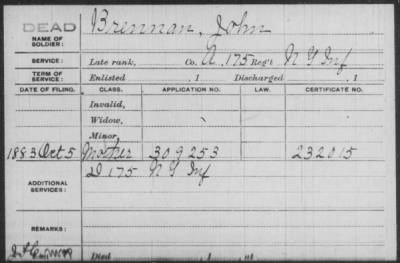 DEAD
NAME OF SOLDIER: Brennan, John
SERVICE: Late rank, Co. A, 175 Reg't N Y Inf
TERM OF SERVICE: Enlisted , 1 Discharged , 1
DATE OF FILING. CLASS. APPLICATION NO. LAW. CERTIFICATE NO.
Invalid,
Widow,
Minor,
1883 Oct 5 Mother 309253 232015
ADDITIONAL SERVICES: D 175 N Y Inf
REMARKS:
Died , 1 , at